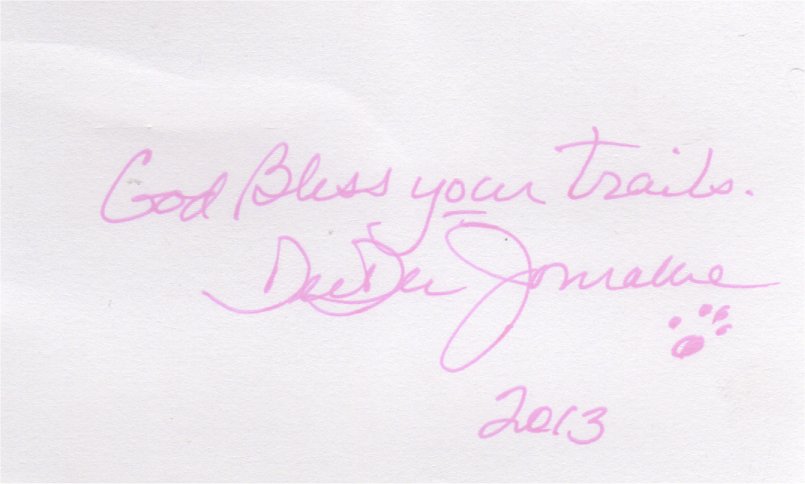 God Bless your trails.
DeeDee Jonrowe
2013